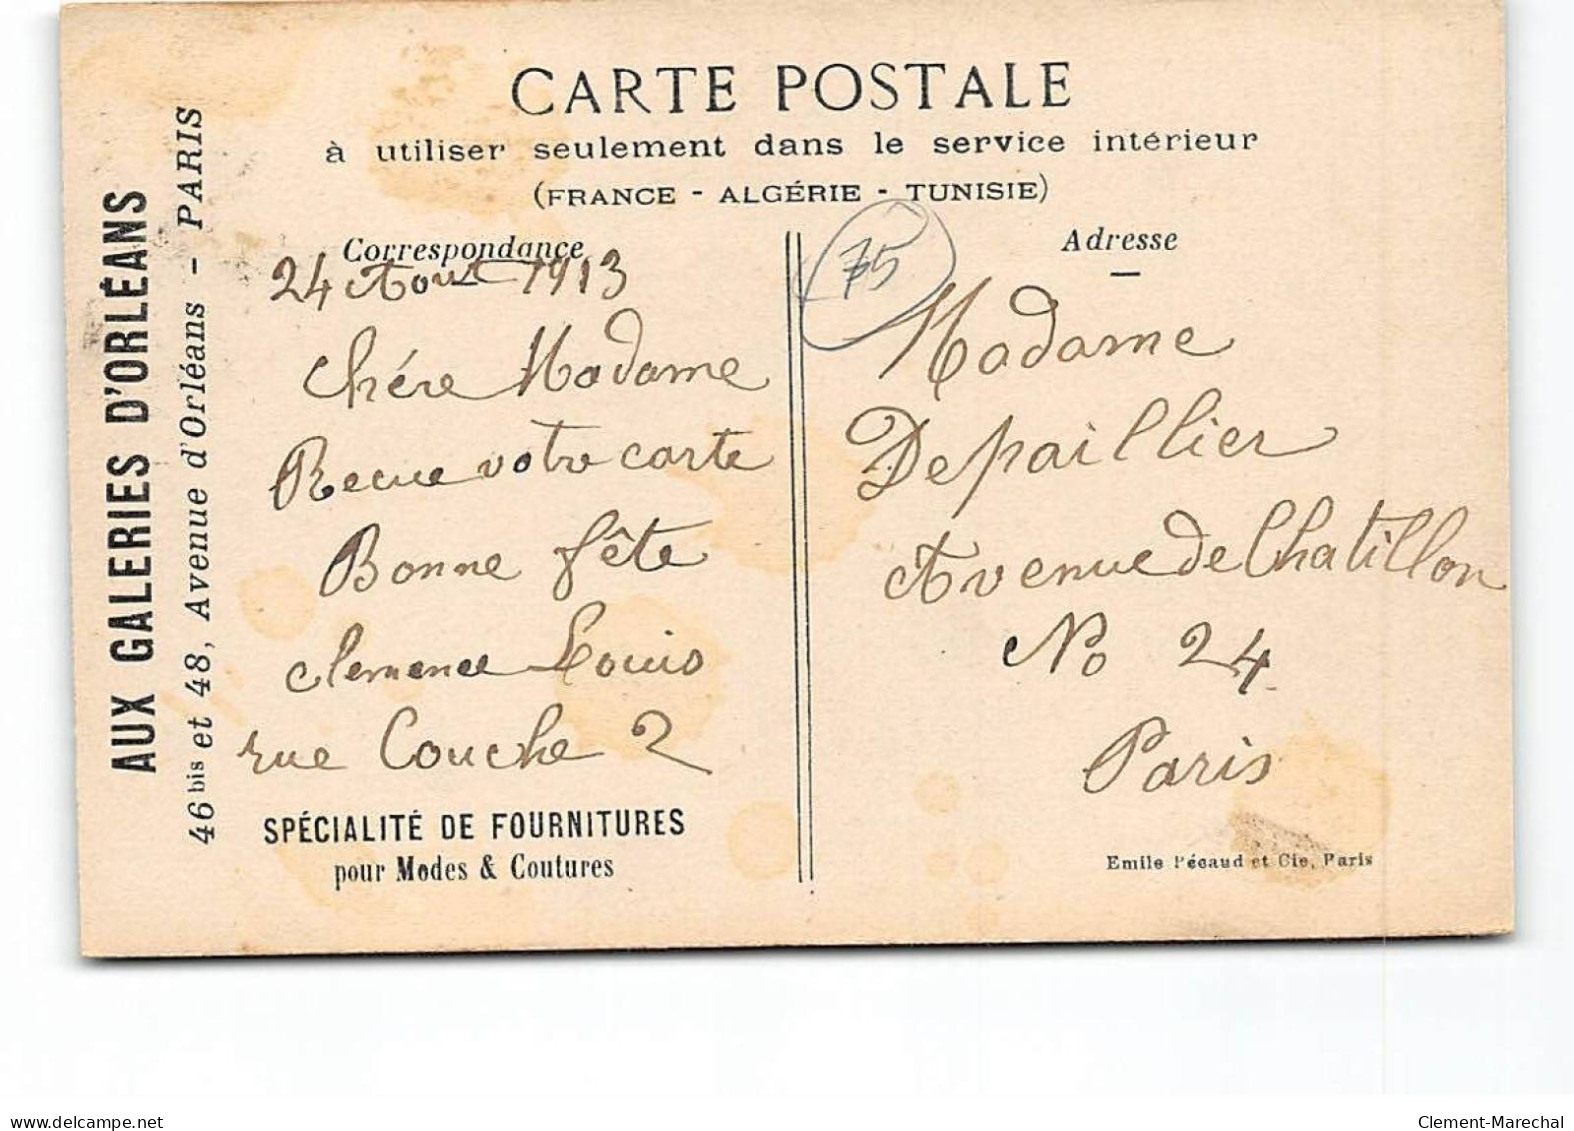 CARTE POSTALE
à utiliser seulement dans le service intérieur
(FRANCE - ALGÉRIE - TUNISIE)
AUX GALERIES D'ORLÉANS
46bis et 48, Avenue d'Orléans - PARIS
Correspondance
24 Aout 1913
Chére Madame
Recue votre carte
Bonne fête
Clemence Louis
rue Couche 2
SPÉCIALITÉ DE FOURNITURES
pour Modes & Coutures
75
Adresse
Madame
Depaillier
Avenue de Chatillon
No 24
Paris
Emile Pécaud et Cie, Paris
www.delcampe.net
Clement-Marechal